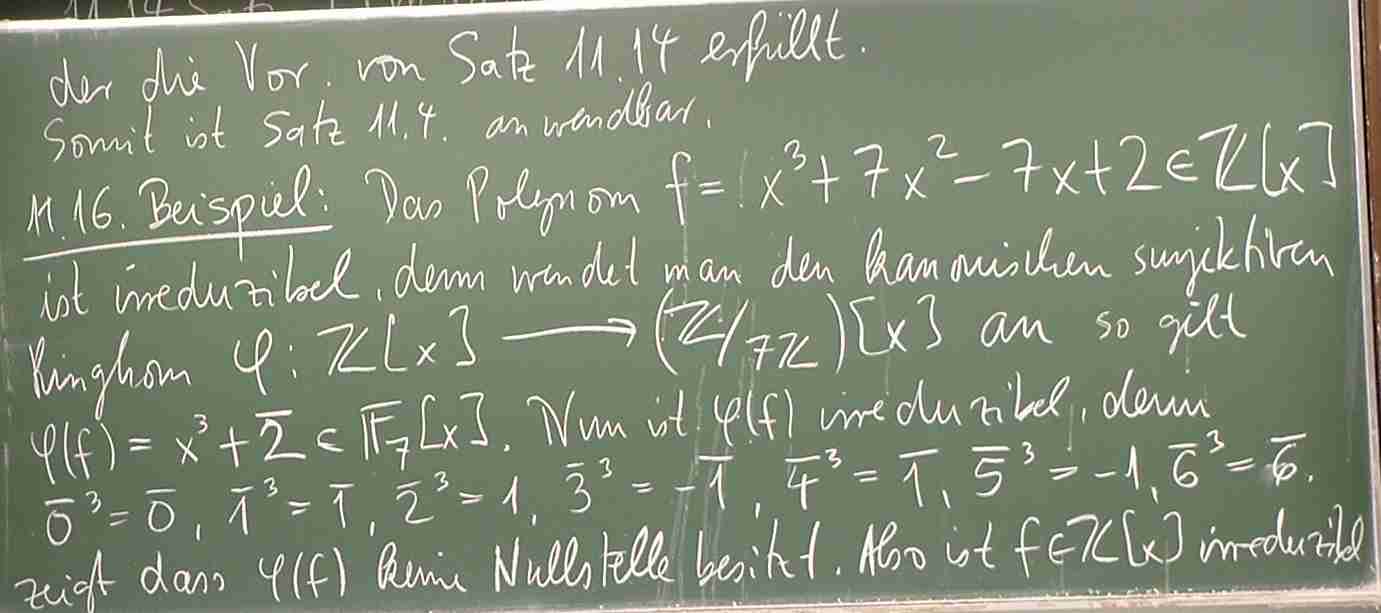 der die Vor. von Satz 11.14 erfüllt.
Somit ist Satz 11.4. anwendbar.
11.16. Beispiel: Das Polynom f = x³ + 7x² - 7x + 2 ∈ ℤ[x]
ist irreduzibel, denn wendet man den kanonischen surjektiven
Ringhom φ: ℤ[x] ⟶ (ℤ/7ℤ)[x] an so gilt
φ(f) = x³ + 2̅ ∈ 𝔽₇[x]. Nun ist φ(f) irreduzibel, denn
0̅³ = 0̅, 1̅³ = 1̅, 2̅³ = 1, 3̅³ = -1̅, 4̅³ = 1̅, 5̅³ = -1, 6̅³ = 6̅.
zeigt dass φ(f) keine Nullstelle besitzt. Also ist f ∈ ℤ[x] irreduzibel